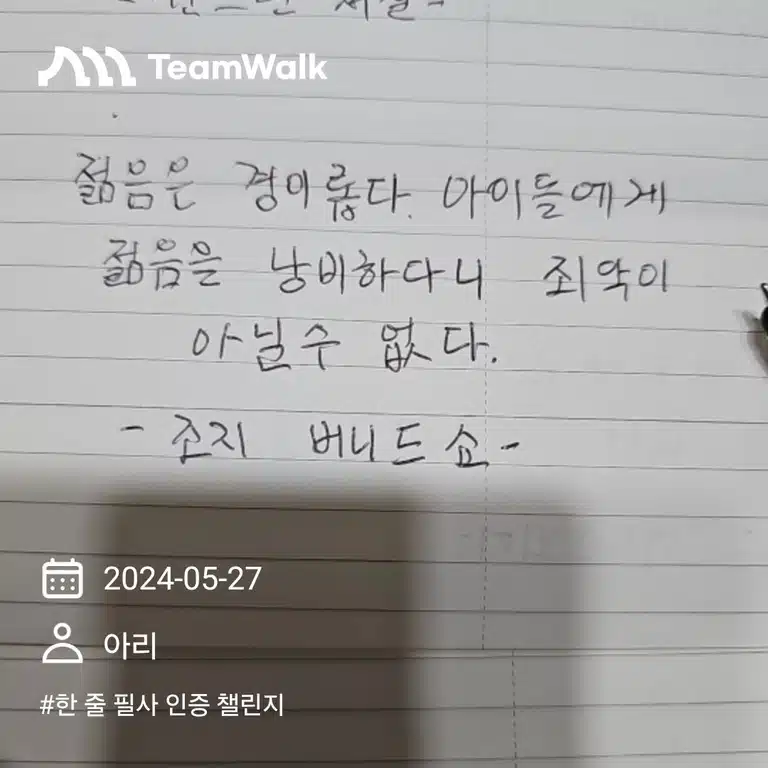 TeamWalk
젊음은 경이롭다. 아이들에게
젊음을 낭비하다니 죄악이
아닐수 없다.
- 조지 버니드 쇼 -
2024-05-27
아리
#한 줄 필사 인증 챌린지